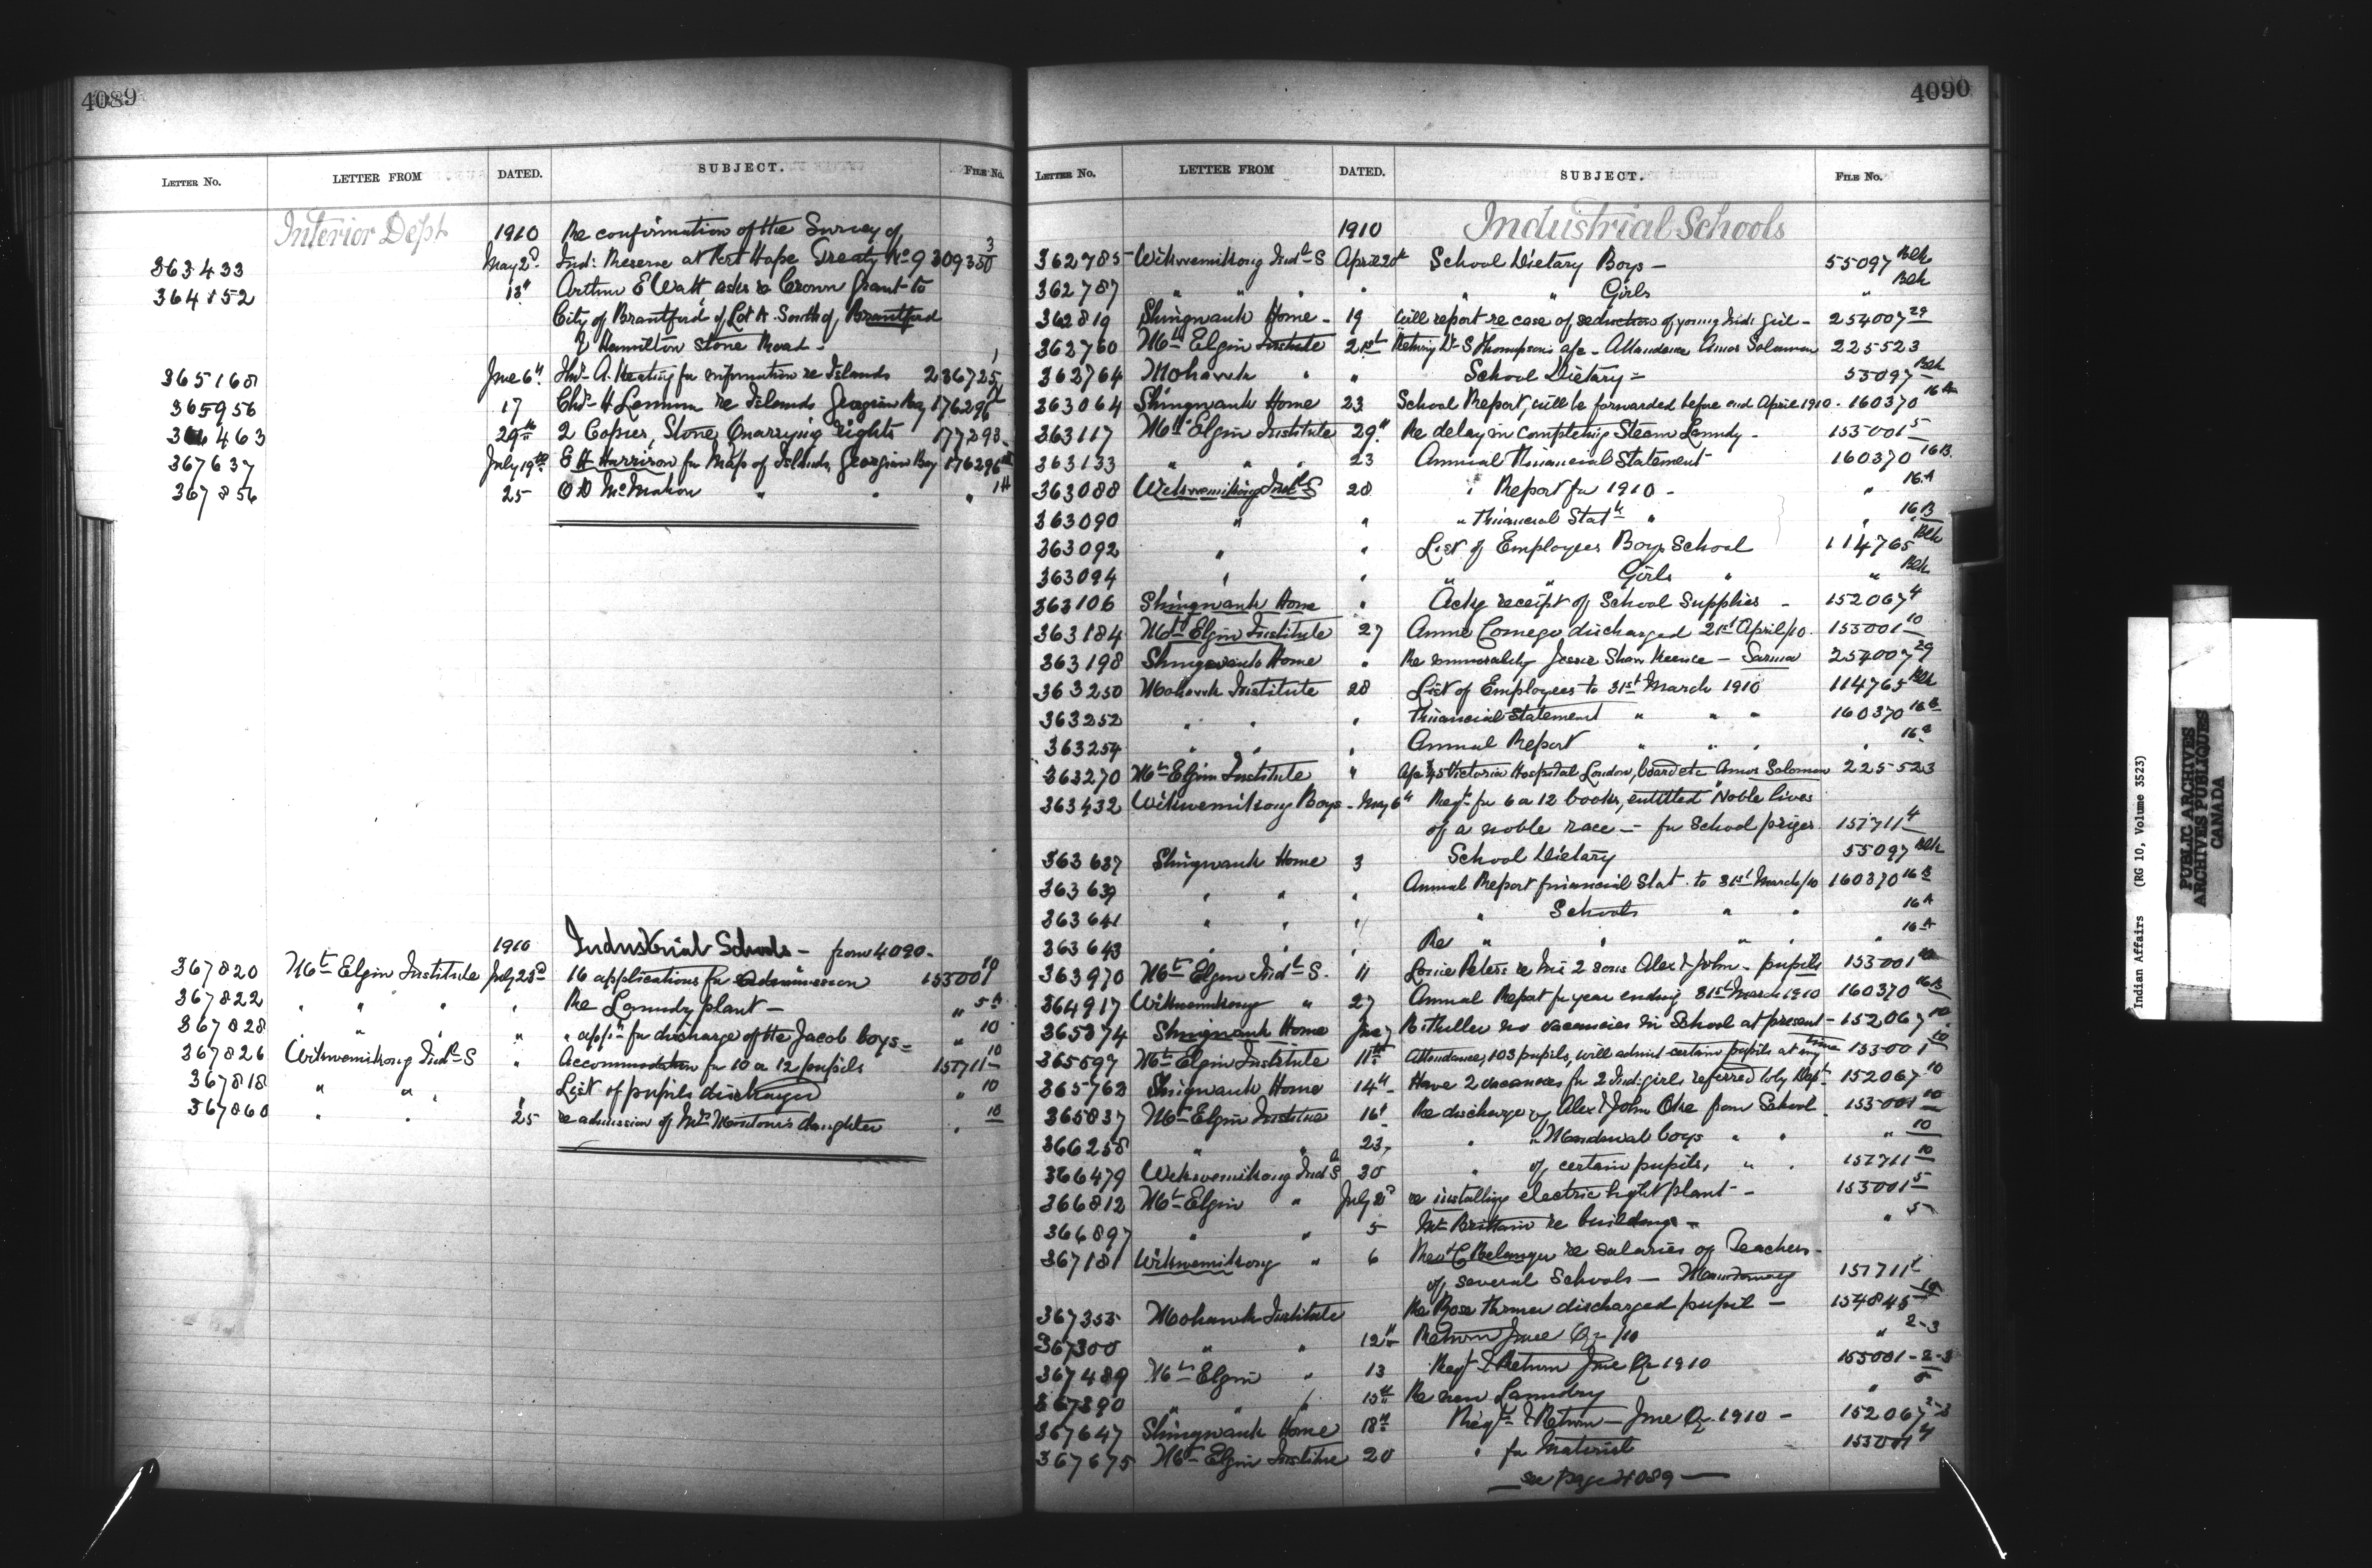 4089
LETTER NO. LETTER FROM DATED. SUBJECT. FILE NO.
Interior Dept 1910 Re confirmation of the Survey of
363433 May 2d Ind: Reserve at Fort Hope Treaty No 9 309350 3
364852 13" Arthur E Watt asks re Crown Grant to
City of Brantford of Lot A. South of Brantford
& Hamilton Stone Road -
365168 June 6" A. Keating for information re Islands 236725 1
365956 17 Chas H Lennox re Islands Georgian Bay 176296
463 29th 2 Copies, Stone Quarrying rights 177293
367637 July 19th E H Harrison for Map of Islands, Georgian Bay 176296
367856 25 O D McMahon " " " 1H
1910 Industrial Schools - from 4090 -
367820 Mt Elgin Institute July 23d 16 applications for admission 153001 10
367822 " " " " Re Laundry plant - " 5A
367828 " " " appln for discharge of the Jacob boys - " 10
367826 Wikwemikong Indl S " Accommodation for 10 or 12 pupils 157711 10
367818 " " " List of pupils discharged " 10
367860 " " 25 re admission of Mrs daughter " 10
4090
LETTER NO. LETTER FROM DATED. SUBJECT. FILE NO.
1910 Industrial Schools
362785 Wikwemikong Indl S April 20th School Dietary Boys - 55097 Blk
362787 " " " " " " Girls " Blk
362819 Shingwauk Home - 19 Will report re case of seduction of young Indi girl - 254007 29
362760 Mt Elgin Institute 21st Retning Dr S Thompson's a/c - Attendance Amos Solomon 225523
362764 Mohawk " " School Dietary - 55097 Blk
363064 Shingwauk Home 23 School Report, will be forwarded before end April 1910 - 160370 16A
363117 Mt Elgin Institute 29" Re delay in completing Steam Laundry - 153001 5
363133 " " " 23 Annual Financial Statement 160370 16B
363088 Wikwemikong Indl S 28 " Report for 1910 - " 16A
363090 " " " Financial Statt " " 16B
363092 " " List of Employees Boys School 114765 Blk
363094 " " " " Girls " " Blk
363106 Shingwauk Home " Ackg receipt of School Supplies - 152067 4
363184 Mt Elgin Institute 27 Annie Comego discharged 21st April/10. 153001 10
363198 Shingwauk Home " Re immorality Jessie Shaw - Sarnia 254007 29
363250 Mohawk Institute 28 List of Employees to 31st March 1910 114765 Blk
363252 " " " Financial Statement " " " 160370 16B
363254 " " " Annual Report " " " " 16A
363270 Mt Elgin Institute " A/c $45 Victoria Hospital London, board etc Amos Solomon 225523
363432 Wikwemikong Boys - May 6" Reqt for 6 or 12 books, entitled "Noble lives
of a noble race - for School prizes 157711 4
363637 Shingwauk Home 3 School Dietary 55097 Blk
363639 " " " Annual Report financial Stat. to 31st March/10 160370 16B
363641 " " " " Schools " " 16A
363643 " " " Re " " " " " 16A
363970 Mt Elgin Indl S. 11 Peters re his 2 sons Alex & John - pupils 153001 10
364917 Wikwemikong " 27 Annual Report for year ending 31st March 1910 160370 16B
365374 Shingwauk Home June 7 B. Fuller no vacancies in School at present - 152067 10
365697 Mt Elgin Institute 11th Attendance, 103 pupils, will admit certain pupils at any time 153001 10
365762 Shingwauk Home 14" Have 2 vacancies for 2 Ind: girls referred to by Dept - 152067 10
365837 Mt Elgin Institute 16" Re discharge of Alex & John Oke from School 153001 10
366258 " " 23 " " boys " " " 10
366479 Wikwemikong Indl S 30 " of certain pupils, " " 157711 10
366812 Mt Elgin " July 2d re installing electric light plant - 153001 5
366897 " " 5 Mr Brittain re buildings - " 5
367181 Wikwemikong " 6 Revd C Belanger re salaries of Teachers -
of several Schools - 157711 1
367355 Mohawk Institute Re Rose Turner discharged pupil - 154845 10
367300 " " 12" Return June Qr /10 " 2-3
367489 Mt Elgin " 13 Reqt & Return June Qr 1910 153001 - 2-3
" " " 15th Re new Laundry " 5
367647 Shingwauk Home 18th Reqt & Return - June Qr. 1910 - 152067 2-3
367675 Mt Elgin Institute 20 " for Material 153001 4
see page 4089
Indian Affairs (RG 10, Volume 3523)
PUBLIC ARCHIVES
ARCHIVES PUBLIQUES
CANADA